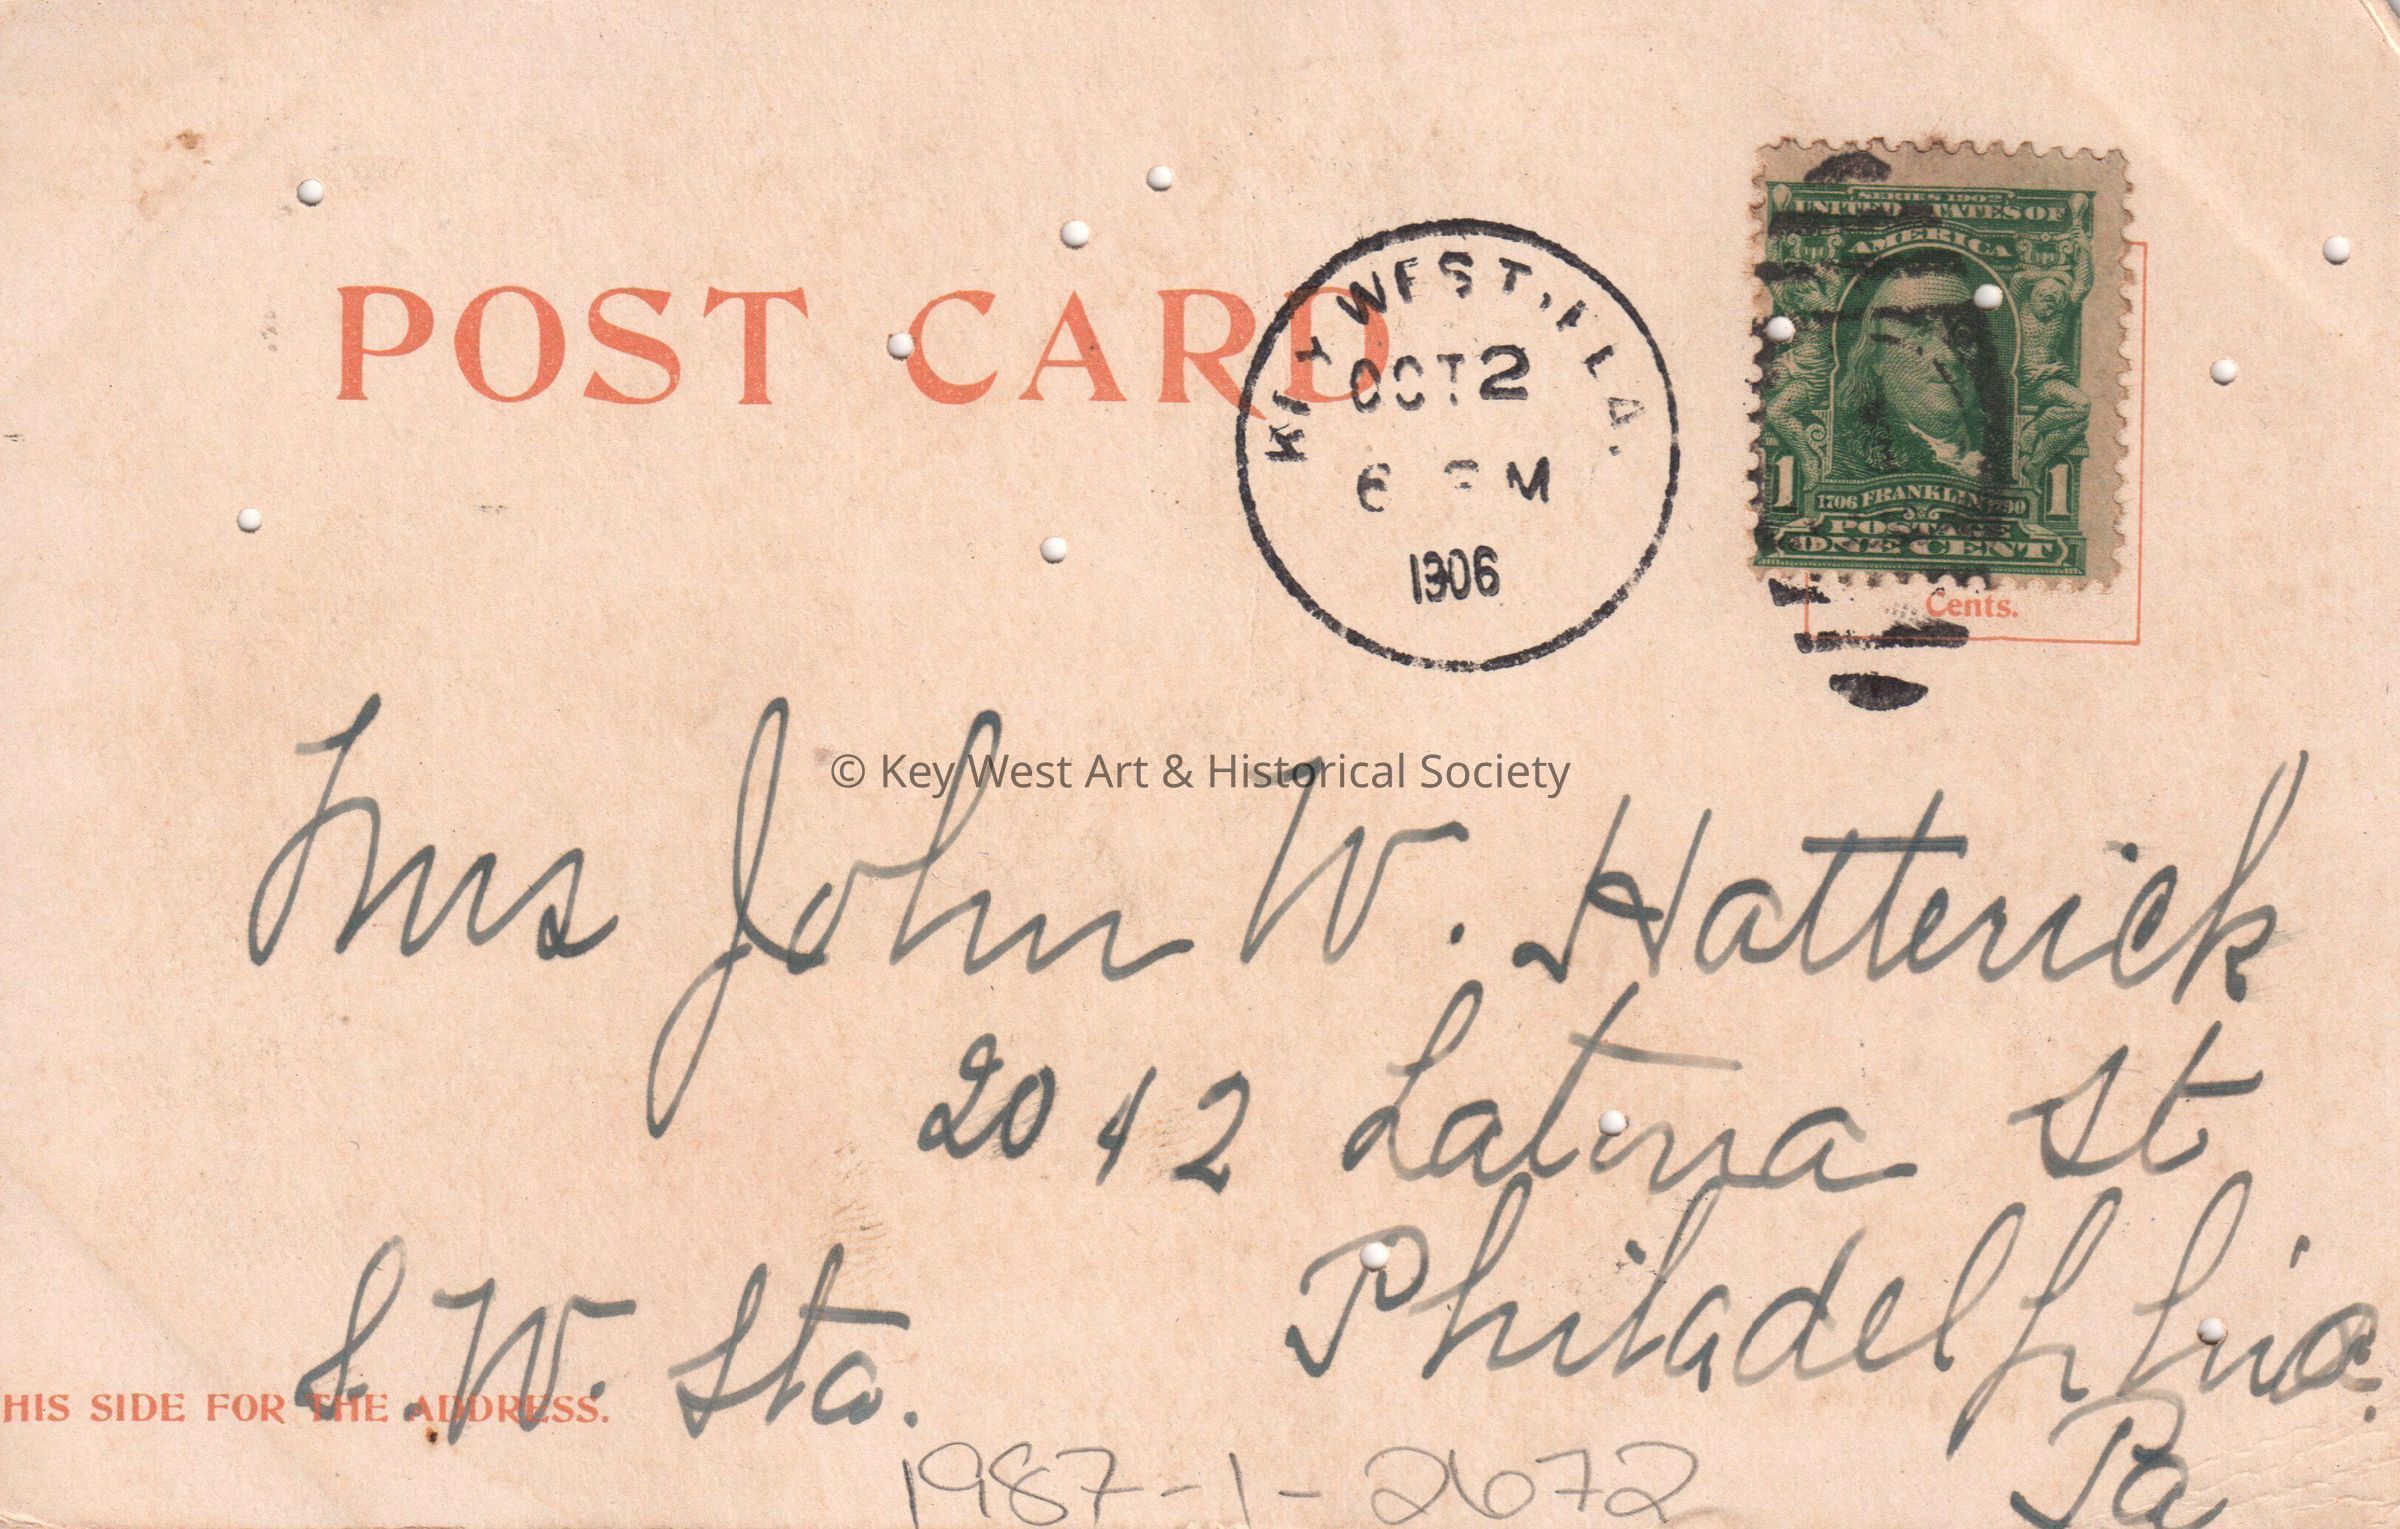 POST CARD
KEY WEST, FLA.
OCT 2
6 PM
1906
SERIES 1902
UNITED STATES OF
AMERICA
1 1706 FRANKLIN 1790 1
POSTAGE
ONE CENT
Cents.
© Key West Art & Historical Society
Mrs John W. Hatterick
2042 Latona St
Philadelphia.
Pa
S.W. Sta.
HIS SIDE FOR THE ADDRESS.
1987-1-2672